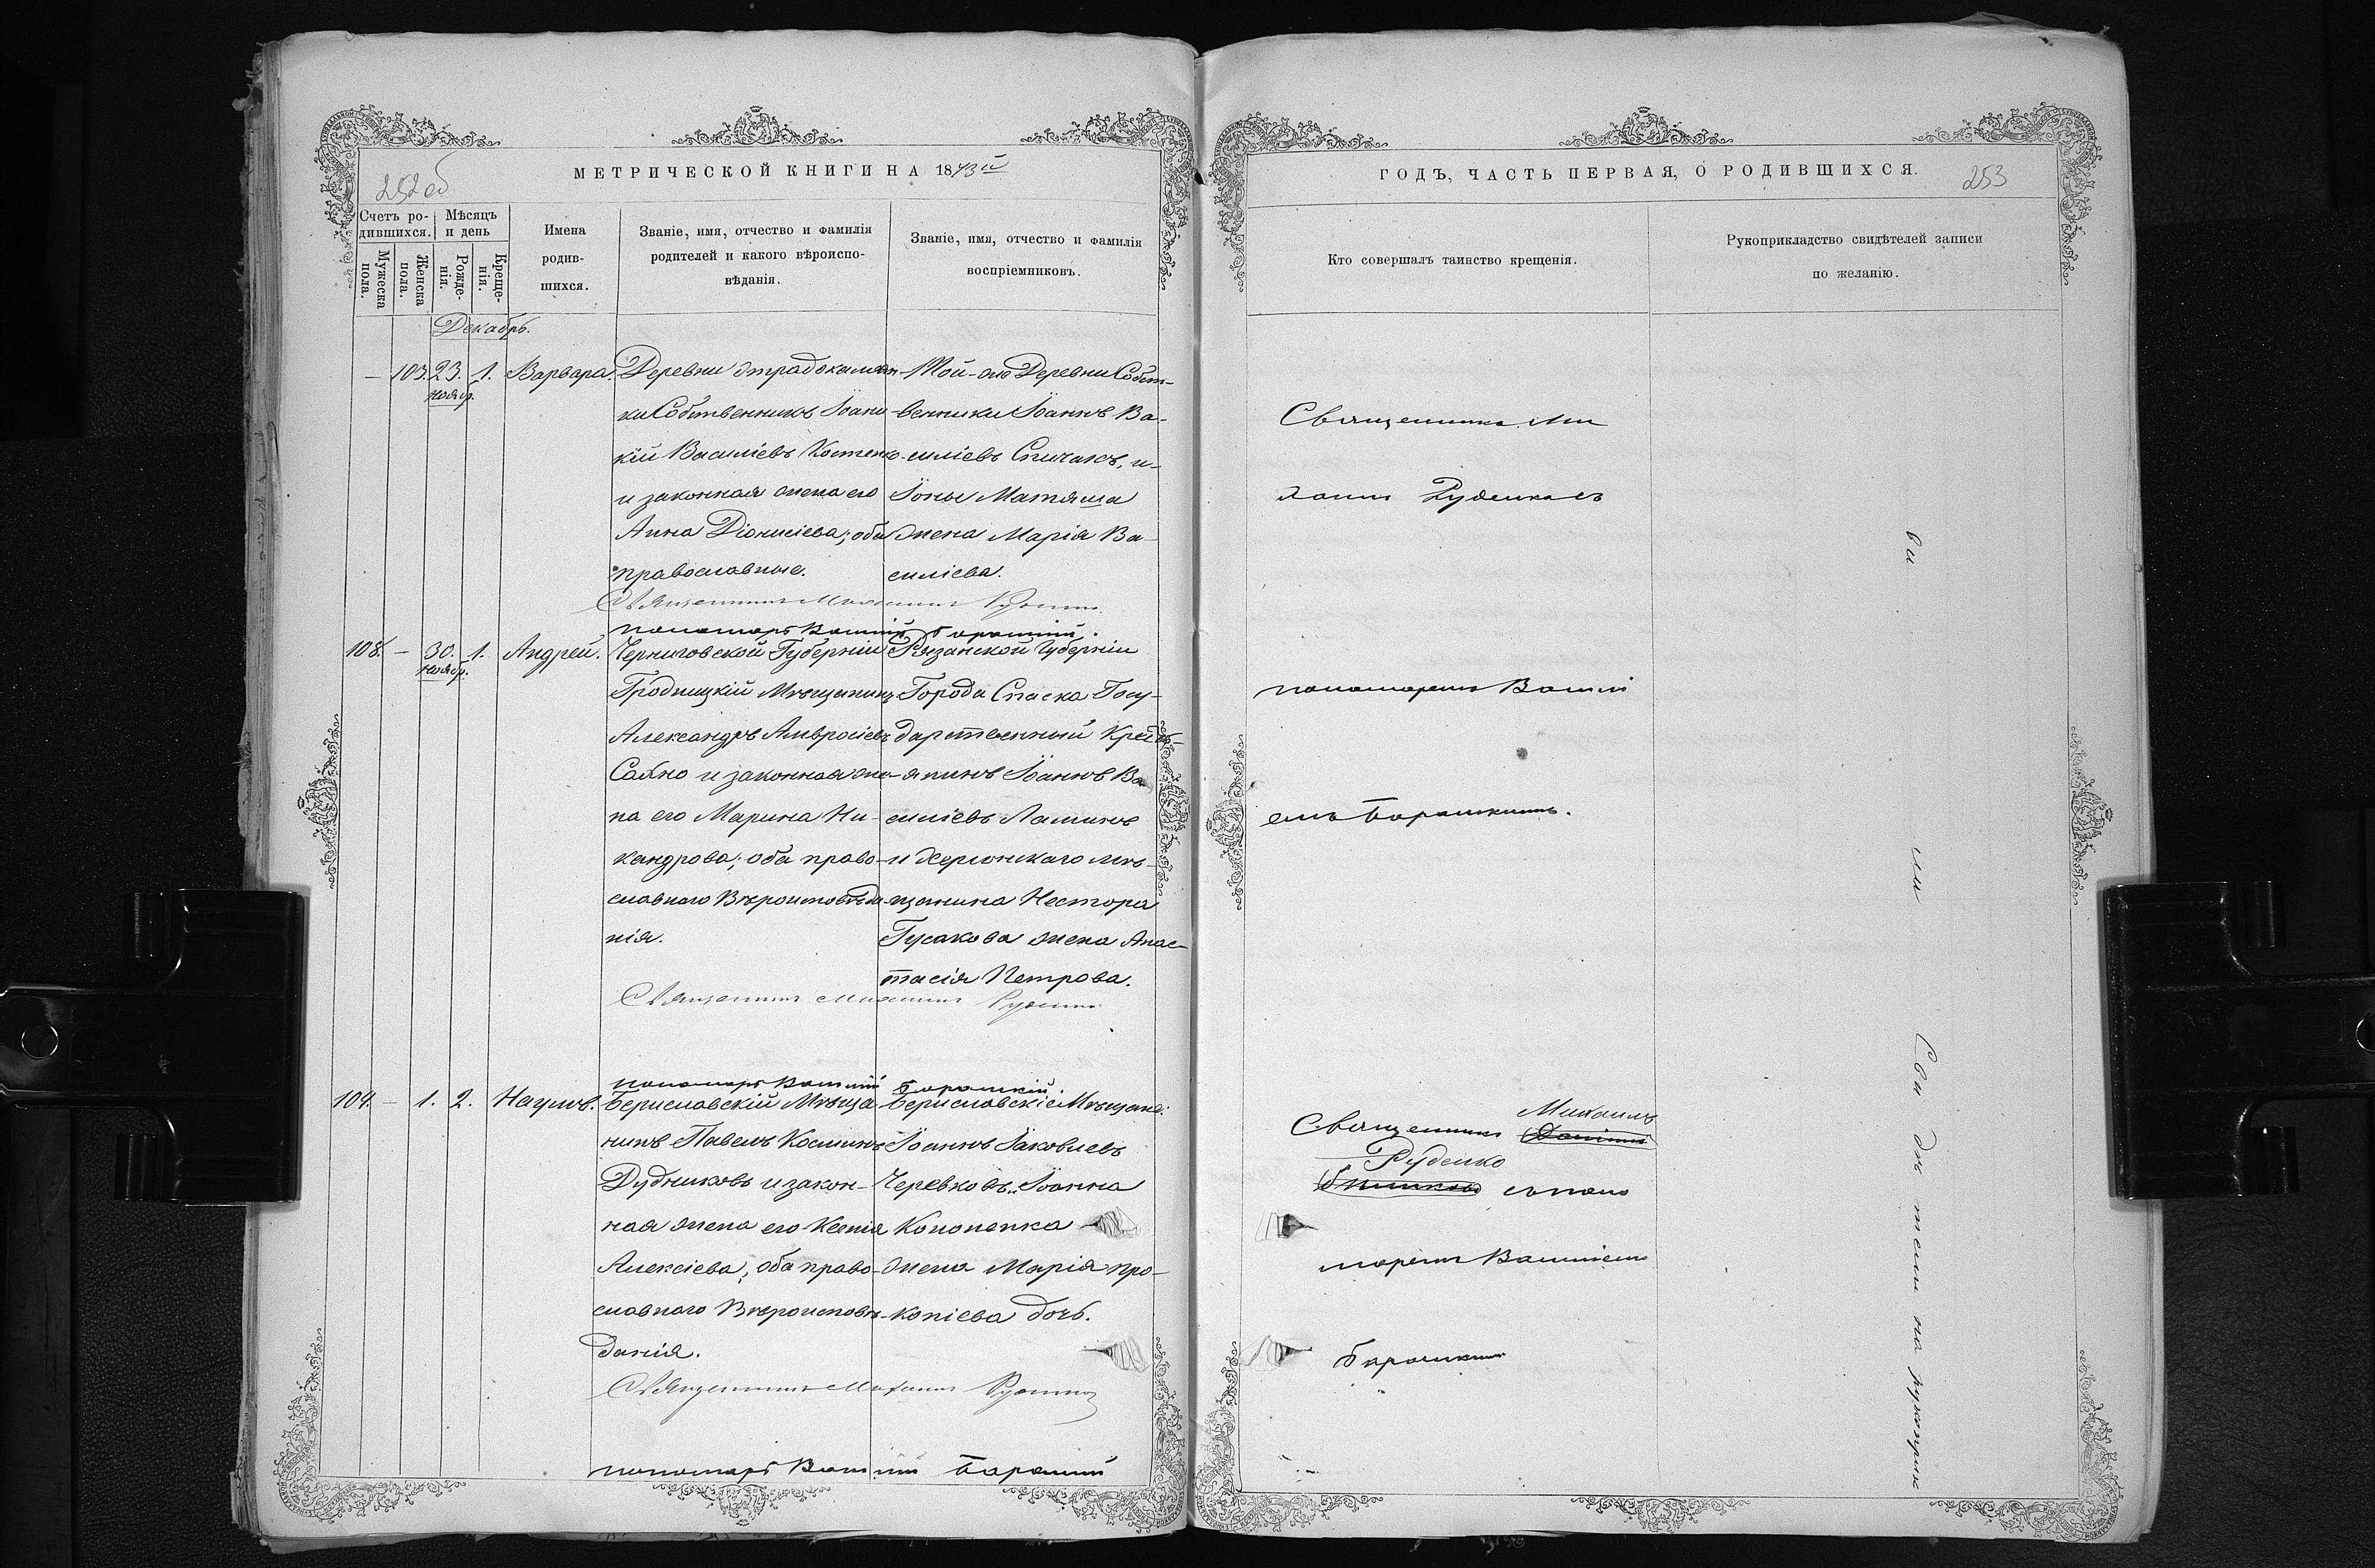 252об
МЕТРИЧЕСКОЙ КНИГИ НА 1873й
Счетъ ро-
дившихся.
Мужеска
пола.
Женска
пола.
Мѣсяцъ
и день
Рожде-
нія.
Креще-
нія.
Имена
родив-
шихся.
Званіе, имя, отчество и фамилія
родителей и какого вѣроиспо-
вѣданія.
Званіе, имя, отчество и фамилія
воспріемниковъ.
Декабрь.
— 103. 23. 1. Варвара.
Ноябр.
Деревни
ки Собственникъ Іоанни-
кій Василіевъ Костенко
и законная жена его
Анна Діонисіева; оба
православные.
Той-же Деревни Собст-
венники Іоаннъ Ва-
силіевъ Спичакъ, и
Іоны Матяша
жена Марія Ва-
силіева.
Священникъ Михаилъ Руденко
пономарь Василій
108. — 30. 1. Андрей.
Ноябр.
Черниговской Губерніи
Гродницкій Мѣщанинъ
Александръ Амвросіевъ
и законная же-
на его Марина Ни-
кандрова; оба право-
славнаго Вѣроисповѣда-
нія.
Рязанской Губерніи
Города Спаска Госу-
дарственный Кресть-
янинъ Іоаннъ Ва-
силіевъ
и Херсонскаго мѣ-
щанина Нестора
Гусакова жена Анас-
тасія Петрова.
Священникъ Михаилъ Руденко
пономарь Василій
109. — 1. 2. Наумъ.
Бериславскій Мѣща-
нинъ Павелъ Косминъ
Дудниковъ и закон-
ная жена его Ксенія
Алексіева, оба право-
славнаго Вѣроисповѣ-
данія.
Бериславскіе Мѣщане:
Іоаннъ Іаковлевъ
Черевковъ, Іоанна
Кононенка
жена Марія Про-
копіева дочь.
Священникъ Михаилъ Руденко
пономарь Василій
ГОДЪ, ЧАСТЬ ПЕРВАЯ, О РОДИВШИХСЯ.
253
Кто совершалъ таинство крещенія.
Рукоприкладство свидѣтелей записи
по желанію.
Священникъ Ми
хаилъ Руденко съ
пономаремъ Васили
емъ
Священникъ Михаилъ
Руденко
съ поно
маремъ Василіемъ